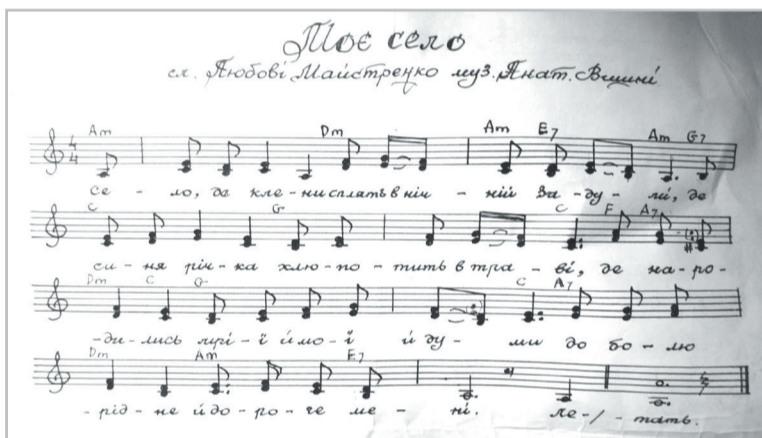 Моє село
сл. Любові Майстренко муз. Анат. Вишні
Am Dm Am E7 Am G7
4
4
Се - ло, де клени сплять в ніч - ній за - ду - мі, де
C G C F A7
си - ня річ - ка хлю - по - тить в тра - ві, де на - ро -
Dm C G C A7
- ди - лись мрі - ї й мо - ї й ду - ми до бо - лю
Dm Am E7
- рід - не й до - ро - ге ме - ні. Ле - / - тать.